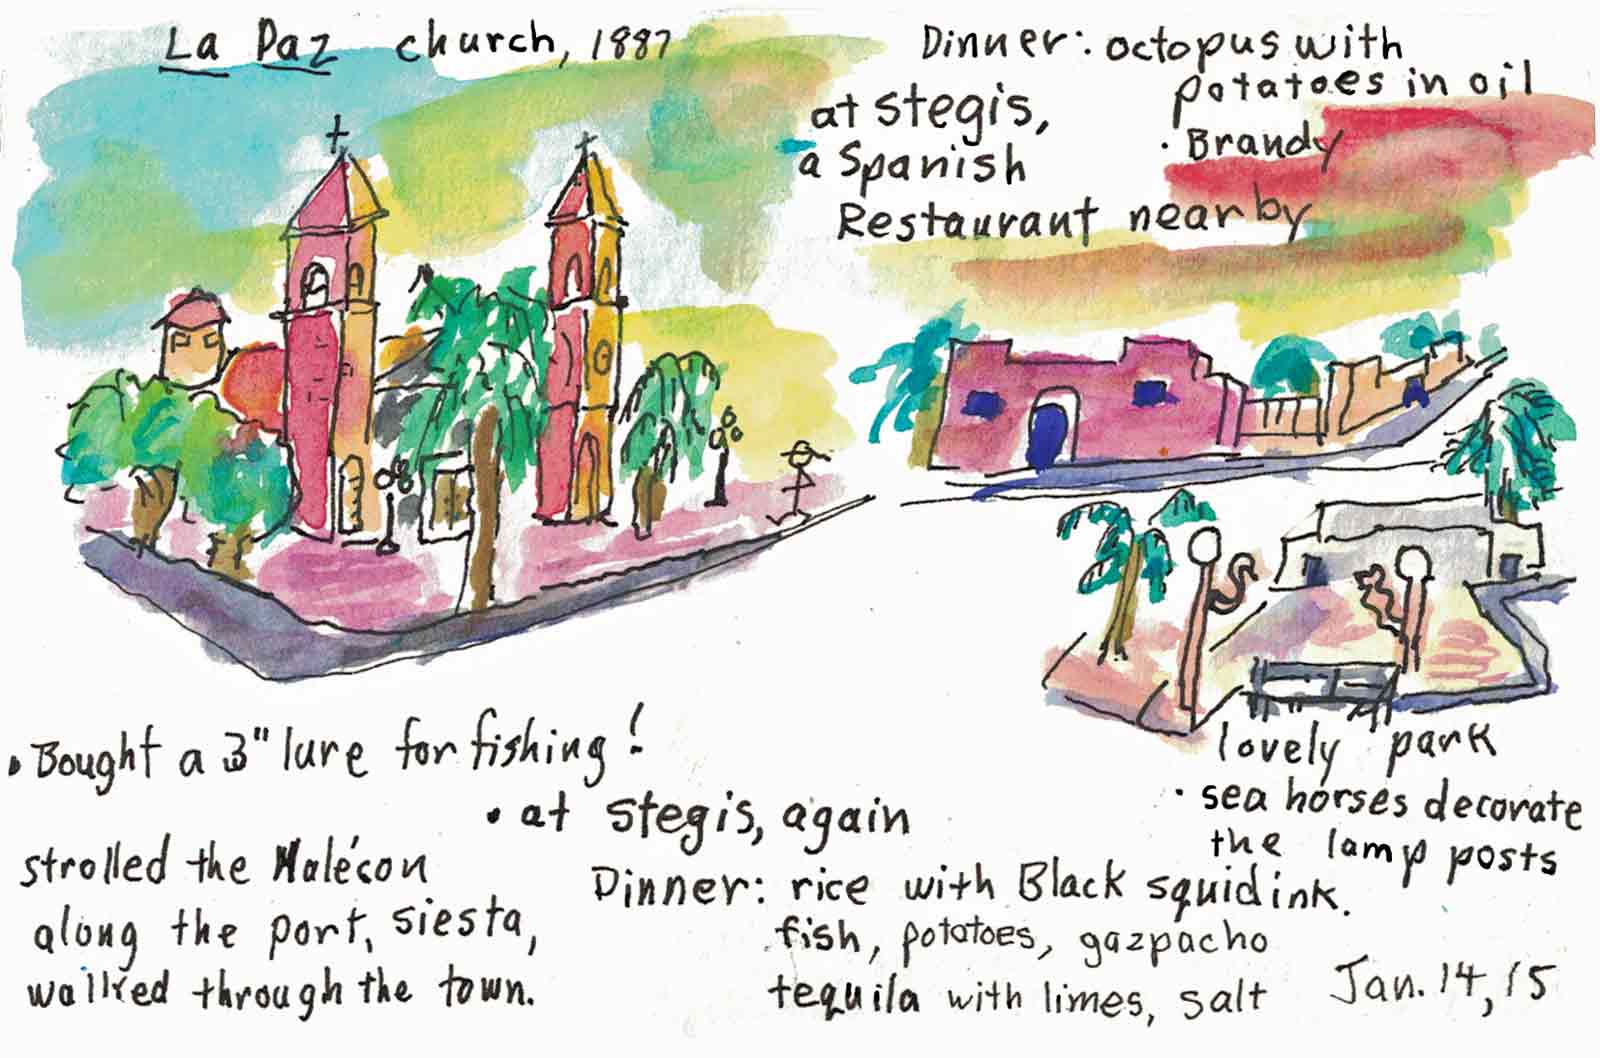 La Paz church, 1887
Dinner: octopus with
potatoes in oil
• Brandy
at Stegis,
a Spanish
Restaurant nearby
• Bought a 3" lure for fishing!
strolled the Malécon
along the port, siesta,
walked through the town.
lovely park
• sea horses decorate
the lamp posts
• at Stegis, again
Dinner: rice with Black squid ink.
fish, potatoes, gazpacho
tequila with limes, salt
Jan. 14, 15